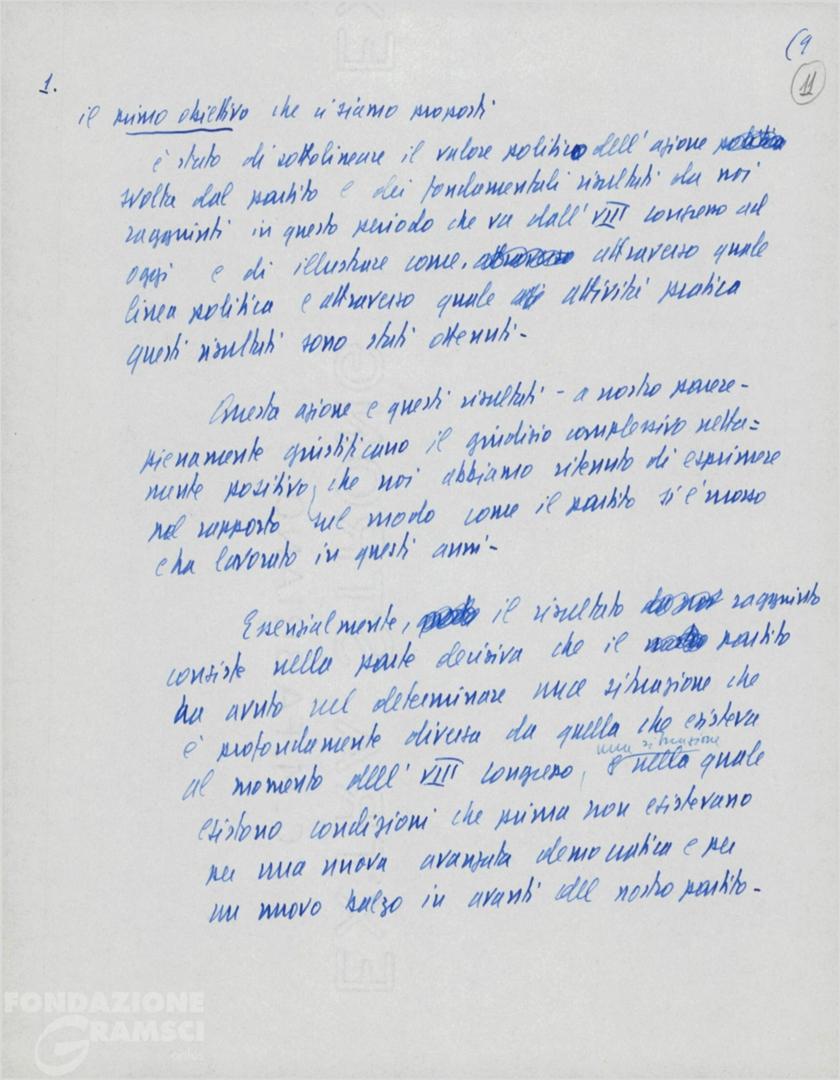 (9
11
1.
il primo obiettivo che ci siamo proposti
è stato di sottolineare il valore politico dell'azione politica
svolta dal partito e dei fondamentali risultati da noi
raggiunti in questo periodo che va dall'VIII congresso ad
oggi e di illustrare come, attraverso attraverso quale
linea politica e attraverso quale atti attività pratica
questi risultati sono stati ottenuti -
Questa azione e questi risultati - a nostro parere -
pienamente giustificano il giudizio complessivo netta=
mente positivo, che noi abbiamo ritenuto di esprimere
nel rapporto sul modo come il partito si è mosso
e ha lavorato in questi anni -
Essenzialmente, il risultato raggiunto
consiste nella parte decisiva che il nostro partito
ha avuto nel determinare una situazione che
è profondamente diversa da quella che esisteva
una situazione
al momento dell'VIII congresso, e nella quale
esistono condizioni che prima non esistevano
per una nuova avanzata democratica e per
un nuovo balzo in avanti del nostro partito -
FONDAZIONE
GRAMSCI
onlus